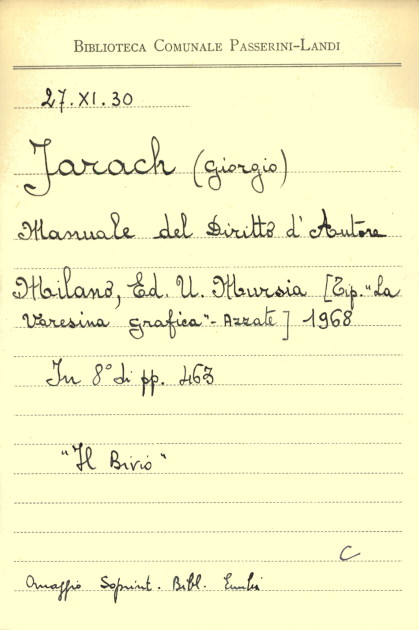 BIBLIOTECA COMUNALE PASSERINI-LANDI
27.XI.30
Jarach (Giorgio)
Manuale del Diritto d'Autore
Milano, Ed. U. Mursia [Tip. "La
Varesina Grafica" - Azzate] 1968
In 8° di pp. 463
"Il Bivio"
C
Omaggio Soprint. Bibl. Emilia